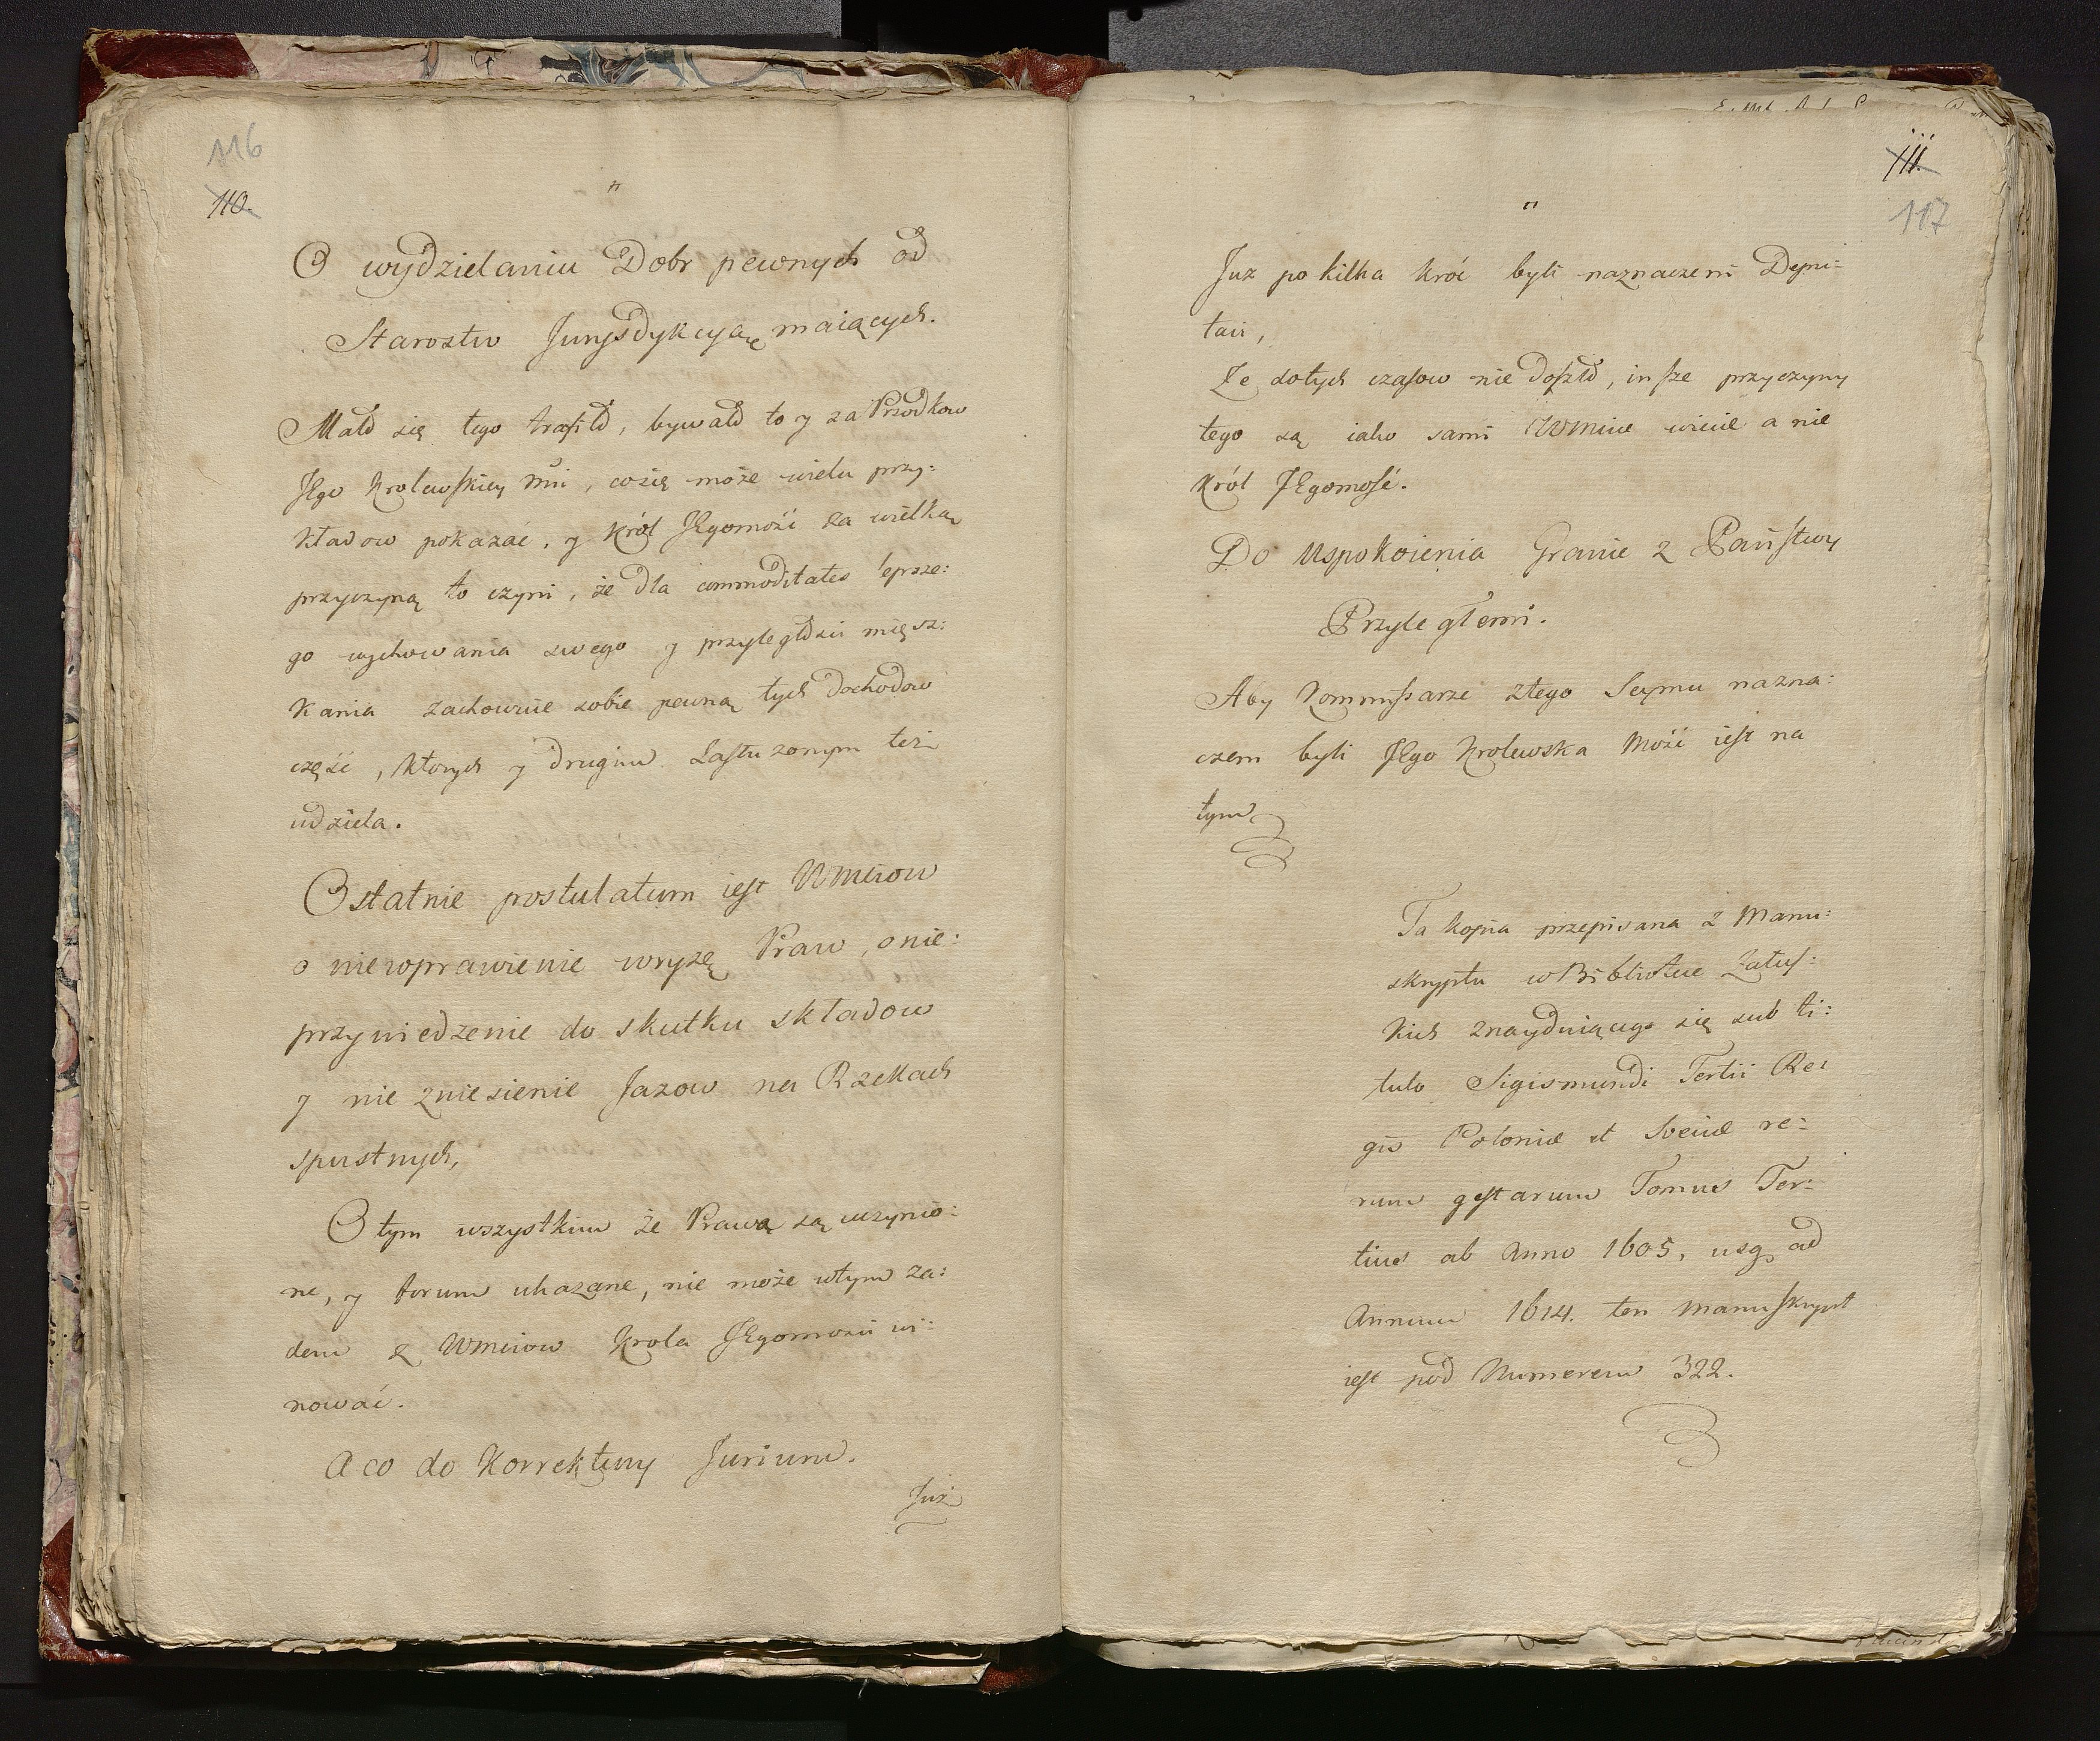 116
110.
O wydzielaniu Dobr pewnych od
Starostw Jurysdykcyą maiących.
Mało się tego trafiło, bywało to y za Przodkow
JEgo Krolewskiey Mci, cosię może wielu przy:
kładow pokazać, y Król JEgomość za wielką
przyczyną to czyni, że dla commoditates lepsze:
go wychowania swego y przyległości mięsz:
kania zachowuie sobie pewną tych dochodow
część, ktorych y drugim Zasłużonym też
udziela.
Ostatnie postulatum iest WMciow
o niewprawienie wryzę Praw, o nie:
przywiedzenie do skutku składow
y nie zniesienie Jazow na Rzekach
spustnych,
O tym wszystkim że Prawa są uczynio:
ne, y forum ukazane, nie może wtym ża:
den z WMciow Krola JEgomości wi:
nować.
A co do Korrektury Jurium.
Już
111.
117
Juz po kilka króć byli naznaczeni Depu:
taci,
Ze dotych czasow nie doszło, insze przyczyny
tego są iako sami WMcie wiecie a nie
Król JEgomość.
Do Uspokoienia Granic z Państwy
Przyległemi.
Aby Kommissarze ztego Seymu nazna:
czeni byli JEgo Krolewska Mość iest na
tym
Ta kopia przepisana z Manu:
skryptu w Bibliotece Załus:
kich znayduiącego się sub ti:
tulo Sigismundi Tertii Re:
gis Poloniæ et Sveciæ re:
rum gestarum Tomus Ter:
tius ab Anno 1605, usq ad
Annum 1614. ten manuskrypt
iest pod Numerem 322.